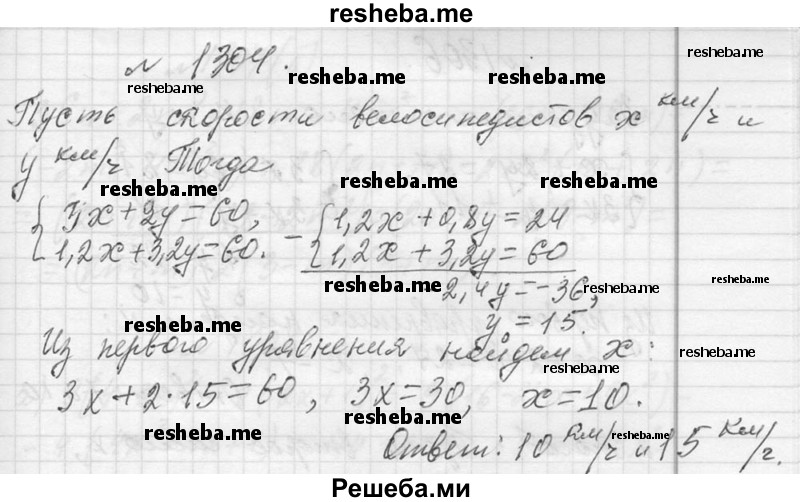 resheba.me
№ 1304.
resheba.me
resheba.me resheba.me
resheba.me
Пусть скорости велосипедистов x км/ч и
y км/ч. Тогда
resheba.me resheba.me resheba.me
{3x+2y=60, – {1,2x+0,8y=24
1,2x+3,2y=60. 1,2x+3,2y=60
resheba.me
resheba.me resheba.me
2,4y=-36,
y=15.
resheba.me
Из первого уравнения найдем x:
resheba.me
resheba.me
3x+2·15=60, 3x=30, x=10.
resheba.me resheba.me
resheba.me resheba.me
Ответ: 10 км/ч и 15 км/ч.
Решеба.ми